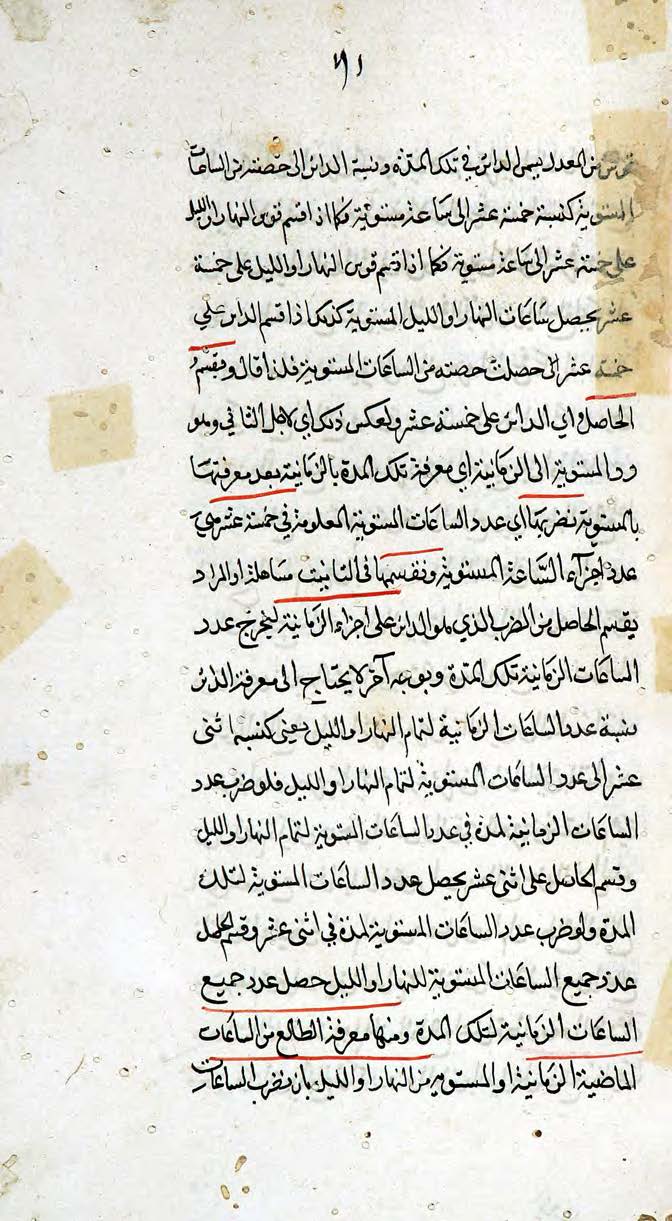 قوس من المعدل يسمى الدائر في تلك المدة ونسبة الدائر الى حصته من الساعات
المستوية كنسبة خمسة عشر الى ساعة مستوية فكما اذا قسم قوس النهار او الليل
على خمسة عشر الى ساعة مستوية فكما اذا قسم قوس النهار او الليل على خمسة
عشر يحصل ساعات النهار او الليل المستوية كذلك اذا قسم الداير على
خمسة عشر حصلت حصته من الساعات المستوية فلذا قال ونقسم
الحاصل اي الدائر على خمسة عشر ولعكس ذلك اي لاجل الثاني وهو
رد المستوية الى الزمانية اي معرفة تلك المدة بالزمانية بعد معرفتها
بالمستوية نضربها اي عدد الساعات المستوية المعلومة في خمسة عشر هي
عدد اجزآء السّاعة المستوية ونقسمها في الثانية مساهلة او المراد
يقسم الحاصل من الضرب الذي هو الدائر على اجزاء الزمانية ليخرج عدد
الساعات الزمانية تلك المدة وبوجه آخر لا يحتاج الى معرفة الدائر
نسبة عدد الساعات الزمانية لتمام النهار او الليل يعني كنسبة اثنى
عشر الى عدد الساعات المستوية لتمام النهار او الليل فلو ضرب عدد
الساعات الزمانية لمدة في عدد الساعات المستوية لتمام النهار او الليل
وقسم الحاصل على اثنى عشر يحصل عدد الساعات المستوية لتلك
المدة ولو ضرب عدد الساعات المستوية لمدة في اثنى عشر وقسم الحاصل
عدد جميع الساعات المستوية للنهار او الليل حصل عدد جميع
الساعات الزمانية لتلك المدة ومنها معرفة الطالع من الساعات
الماضية الزمانية او المستوية من النهار او الليل بان نضرب الساعات